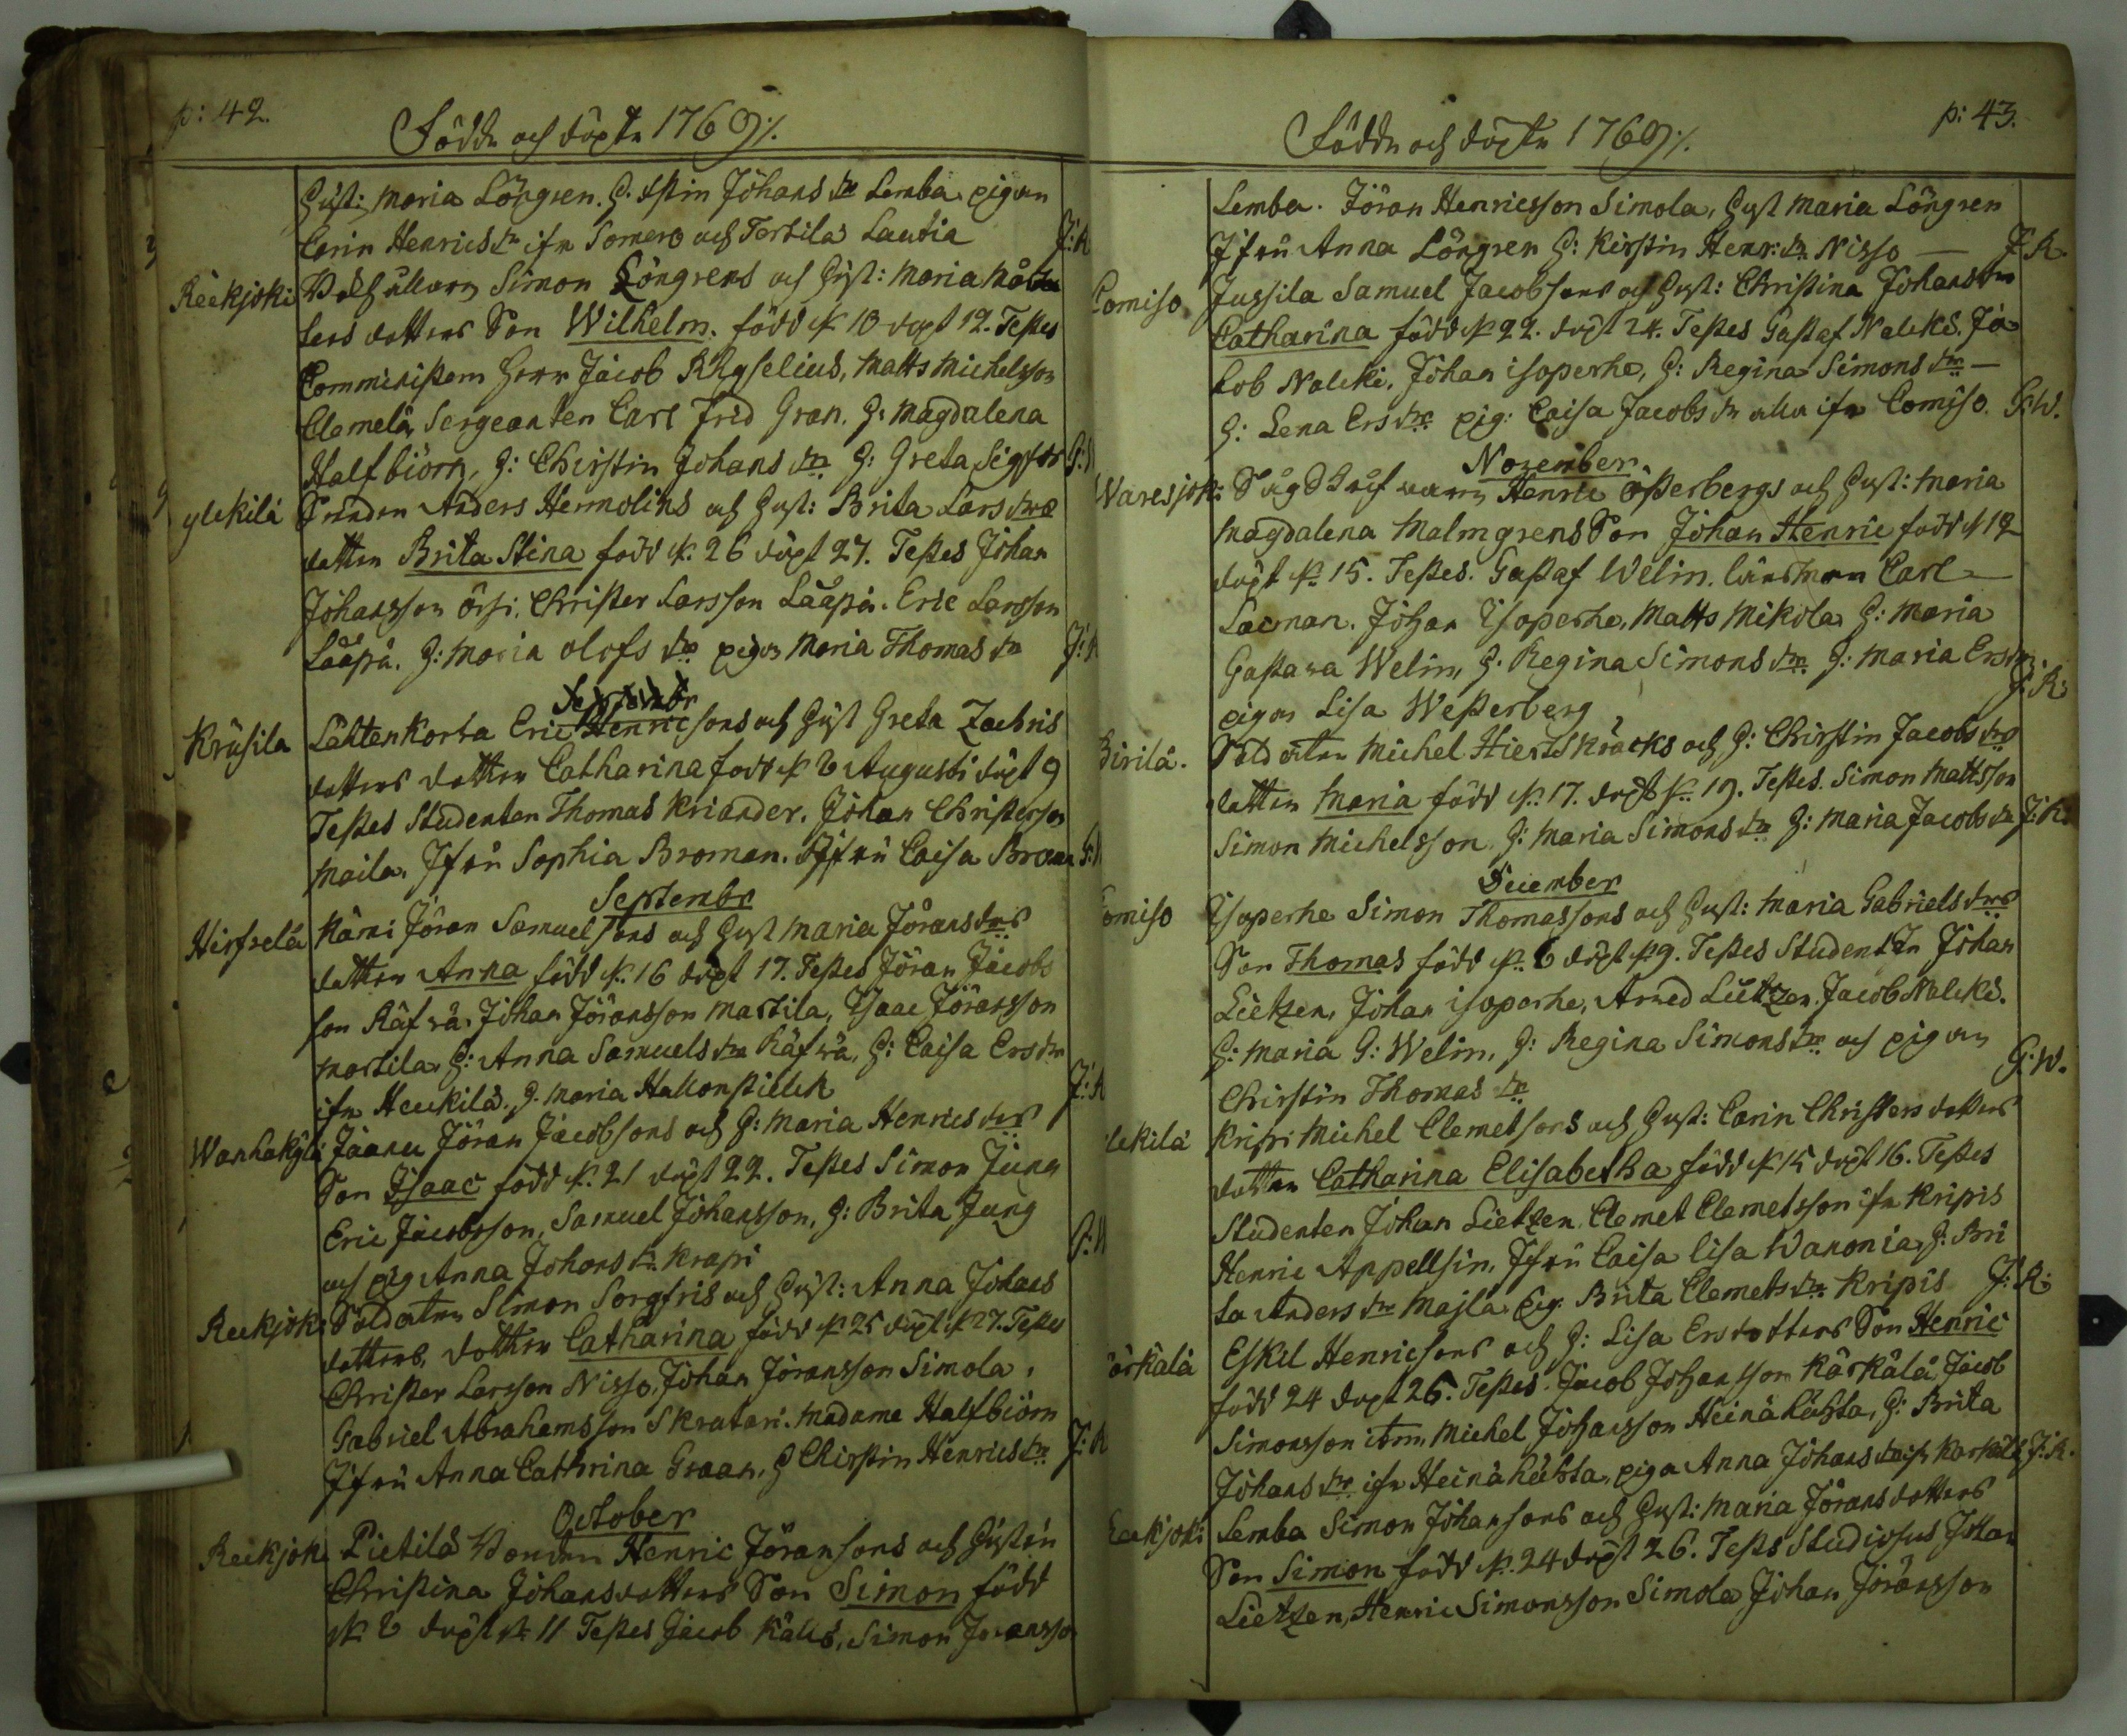 p: 42.
Födde och döpte 1769 ./.
Hust: Maria Löngren. H. Stin Johans dr Lemba. pigan
Carin Henricsdr ifrn Somero och Tortila Lautia J:K
Reekjoki Simon Löngrens och Hust: Maria Matts
dotters Son Wilhelm. född d. 10 döpt 12. Testes
Comministern Herr Jacob Rhyselius, Matts Michelsson
Clemelä, Sergeanten Carl Frid Gran. H: Magdalena
Halfbiörn, H: Christin Johans dr H: Greta Sigfrds
ylekilä Anders Hermolins och Hust: Brita Lars drs
dotter Brita Stina född d. 26 döpt 27. Testes Johan
Johansson örsi. Christer Larsson Lääpä. Eric Larsson
Lääpä. H: Maria Olofs dr pigan Maria Thomas dr J:K
Septembr
Krusila Lähtenkorva Eric Henricsons och Hust Greta Zachris
dotters dotter Catharina född d. 8 Augusti döpt 9
Testes Studenten Thomas Kriander. Johan Christersson
Maila. Jfru Sophia Broman. Jfru Caisa Broman
Septembr
Hirsselä Kärni Jöran Samuelsons och Hust Maria Jörans drs
dotter Anna född d. 16 döpt 17. Testes Jöran Jacobs
son Räfvä. Johan Jöransson Martila, Isaac Jöransson
Martila. H: Anna Samuels dr Räfvä, H: Caisa Ers dr
ifrn Heikilä. H. Maria J:K
Wanhakylä Jaanu Jöran Jacobsons och H: Maria Henrics drs
Son Isaac född d. 21 döpt 22. Testes Simon Jung
Eric Jacobsson, Samuel Johansson, H: Brita Jung
och pig Anna Johans dr Krapi
Reekjoki Soldaten Simon Sorgfris och Hust: Anna Johans
dotters dotter Catharina född d. 25 döpt d. 27. Testes
Christer Larsson Nisso, Johan Jöransson Simola,
Gabriel Abrahamsson Skratari. Madame Halfbiörn
Jfru Anna Cathrina Graan. H Chirstin Henrics dr J:K
October
Reekjoki Pietilä Bonden Henric Jöransons och Hustru
Christina Johansdotters Son Simon född
d. 8 döpt d. 11 Testes Jacob Simon Joransson
p: 43.
Födde och döpte 1769 ./.
Lemba. Jöran Henricsson Simola, Hust Maria Löngren
Jfru Anna Löngren H: Kirstin Henr: dr Nisso — J:K.
Comiso Jussila Samuel Jacobsons och Hust: Christina Johans drs
Catharina född d. 22. döpt 24. Testes Gustaf Nalcki. Ja-
cob Nalcki. Johan isoperhe, H: Regina Simons dr —
H: Lena Ers dr pig: Caisa Jacobs dr alla ifrn Comiso. G:W.
November
Waresjoki Henric Österbergs och Hust: Maria
Magdalena Malmgrens Son Johan Henric född d 12
döpt d. 15. Testes. Gustaf Welin. länsman Carl
Lacman. Johan Isoperhe, Matts Mikola H: Maria
Gustava Welin, H. Regina Simons dr H: Maria Ers dr
pigan Lisa Westerberg J:K.
Pirilä. Soldaten Michel Hiertskräcks och H: Christin Jacobs drs
dotter Maria född d. 17. döpt d. 19. Testes. Simon Mattsson
Simon Michelsson H: Maria Simons dr H: Maria Jacobs dr J:K.
December
Comiso Isoperhe Simon Thomassons och Hust: Maria Gabriels drs
Son Thomas född d. 8 döpt d. 9. Testes Studenten Johan
Lietzen, Johan isoperhe, Arved Lietzen. Jacob Nalcki.
H: Maria G: Welin, H: Regina Simons dr och pigan
Christin Thomas dr G:W.
ylekilä Kripi Michel Clemetsons och Hust: Carin Christers dotters
dotter Catharina Elisabetha född d. 15 döpt 16. Testes
Studenten Johan Lietzen, Clemet Clemetsson ifrn Kripis
Henric Appellsin, Jfru Caisa Lisa Wanonia, H: Bri
ta Anders dr Majla. Pig. Brita Clemets dr Kripis J:K:
Kärkälä Eskil Henricsons och H: Lisa Ersdotters Son Henric
född 24 döpt 26. Testes. Jacob Johansson Kärkälä Jacob
Simonsson ibm, Michel Johansson Heinähuhta, H: Brita
Johans dr ifrn Heinähuhta, piga Anna Johans dr ifr Karkälä J:K.
Reekjoki Lemba Simon Johansons och Hust: Maria Jörans dotters
Son Simon född d. 24 döpt 26. Tests Studiosus Johan
Lietzen, Henric Simonsson Simola Johan Jöransson